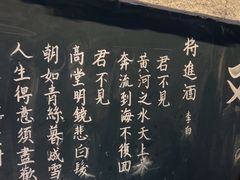 將進酒 李白
君不見
黃河之水天上來
奔流到海不復回
君不見
高堂明鏡悲白髮
朝如青絲暮成雪
人生得意須盡歡